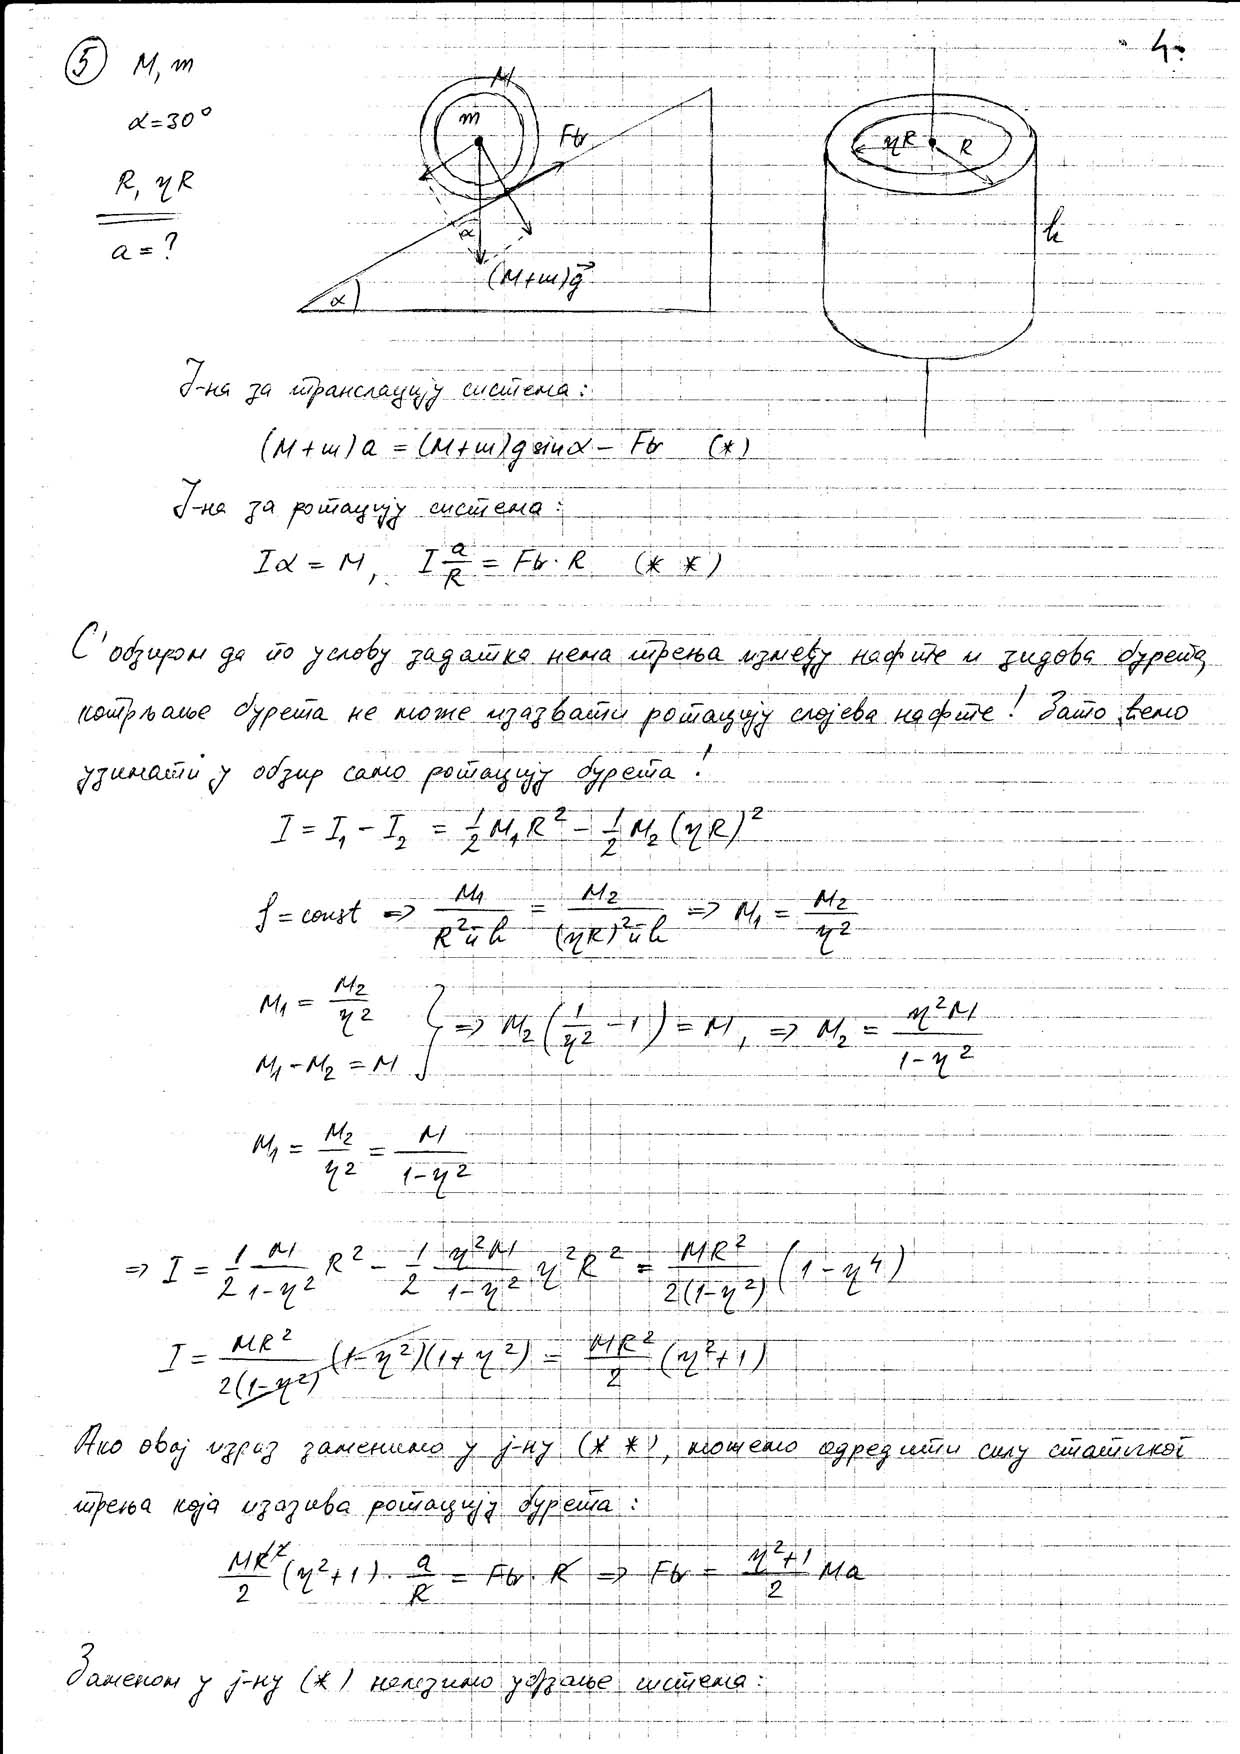 4.
5 M, m
α=30°
R, ηR
a=?
M
m
Ftr
α
(M+m)g⃗
α
ηR
R
h
Ј-на за транслацију система:
(M+m)a = (M+m)g sinα – Ftr (*)
Ј-на за ротацију система:
Iα = M, I a/R = Ftr · R (* *)
С' обзиром да по услову задатка нема трења између нафте и зидова бурета,
котрљање бурета не може изазвати ротацију слојева нафте! Зато ћемо
узимати у обзир само ротацију бурета!
I = I₁ – I₂ = 1/2 M₁R² – 1/2 M₂(ηR)²
ρ = const => M₁/(R²πh) = M₂/((ηR)²πh) => M₁ = M₂/η²
M₁ = M₂/η²
M₁ – M₂ = M } => M₂(1/η² – 1) = M, => M₂ = η²M/(1–η²)
M₁ = M₂/η² = M/(1–η²)
=> I = 1/2 M/(1–η²) R² – 1/2 η²M/(1–η²) η²R² = MR²/(2(1–η²)) (1–η⁴)
I = MR²/(2(1–η²)) (1–η²)(1+η²) = MR²/2 (η²+1)
Ако овај израз заменимо у ј-ну (* *), можемо одредити силу статичког
трења која изазива ротацију бурета:
MR²/2 (η²+1) · a/R = Ftr · R => Ftr = (η²+1)/2 Ma
Заменом у ј-ну (*) налазимо убрзање система: